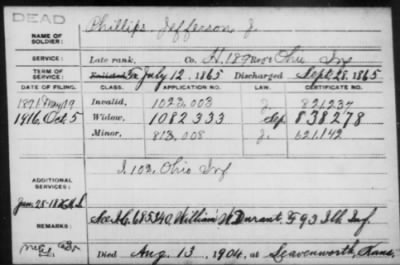 DEAD
NAME OF SOLDIER: Phillips, Jefferson J.
SERVICE: Late rank, Co. H. 189 Reg't Ohio Inf
TERM OF SERVICE: Enlisted July 12, 1865 Discharged Sept 28, 1865
DATE OF FILING. CLASS. APPLICATION NO. LAW. CERTIFICATE NO.
1891 May 19 Invalid, 1023.003 J. 821237
1916 Oct 5 Widow, 1082333 838278
Minor, 813.008 J. 621.142
ADDITIONAL SERVICES: I. 102, Ohio Inf
William W Durant. F 93 Ills Inf.
Died Aug. 13, 1904, at Leavenworth, Kans.